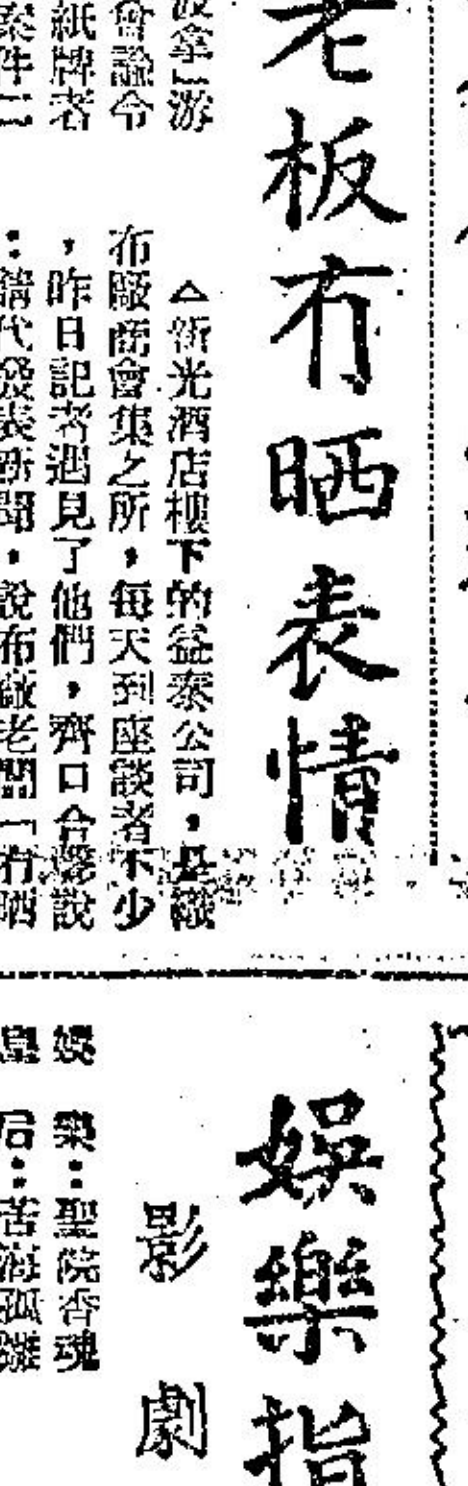 老板冇晒表情
△新光酒店樓下的益泰公司，是織
布廠商會集之所，每天到座談者不少
，昨日記者遇見了他們，齊口合聲說
：請代發表新聞，說布廠老闆「冇晒
游
會論令
紙牌者
案件
娛樂指
影劇
娛樂：聖院香魂
皇后：苦海孤雛